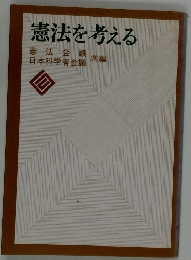 憲法を考える
憲法会議
日本科学者会議 共編